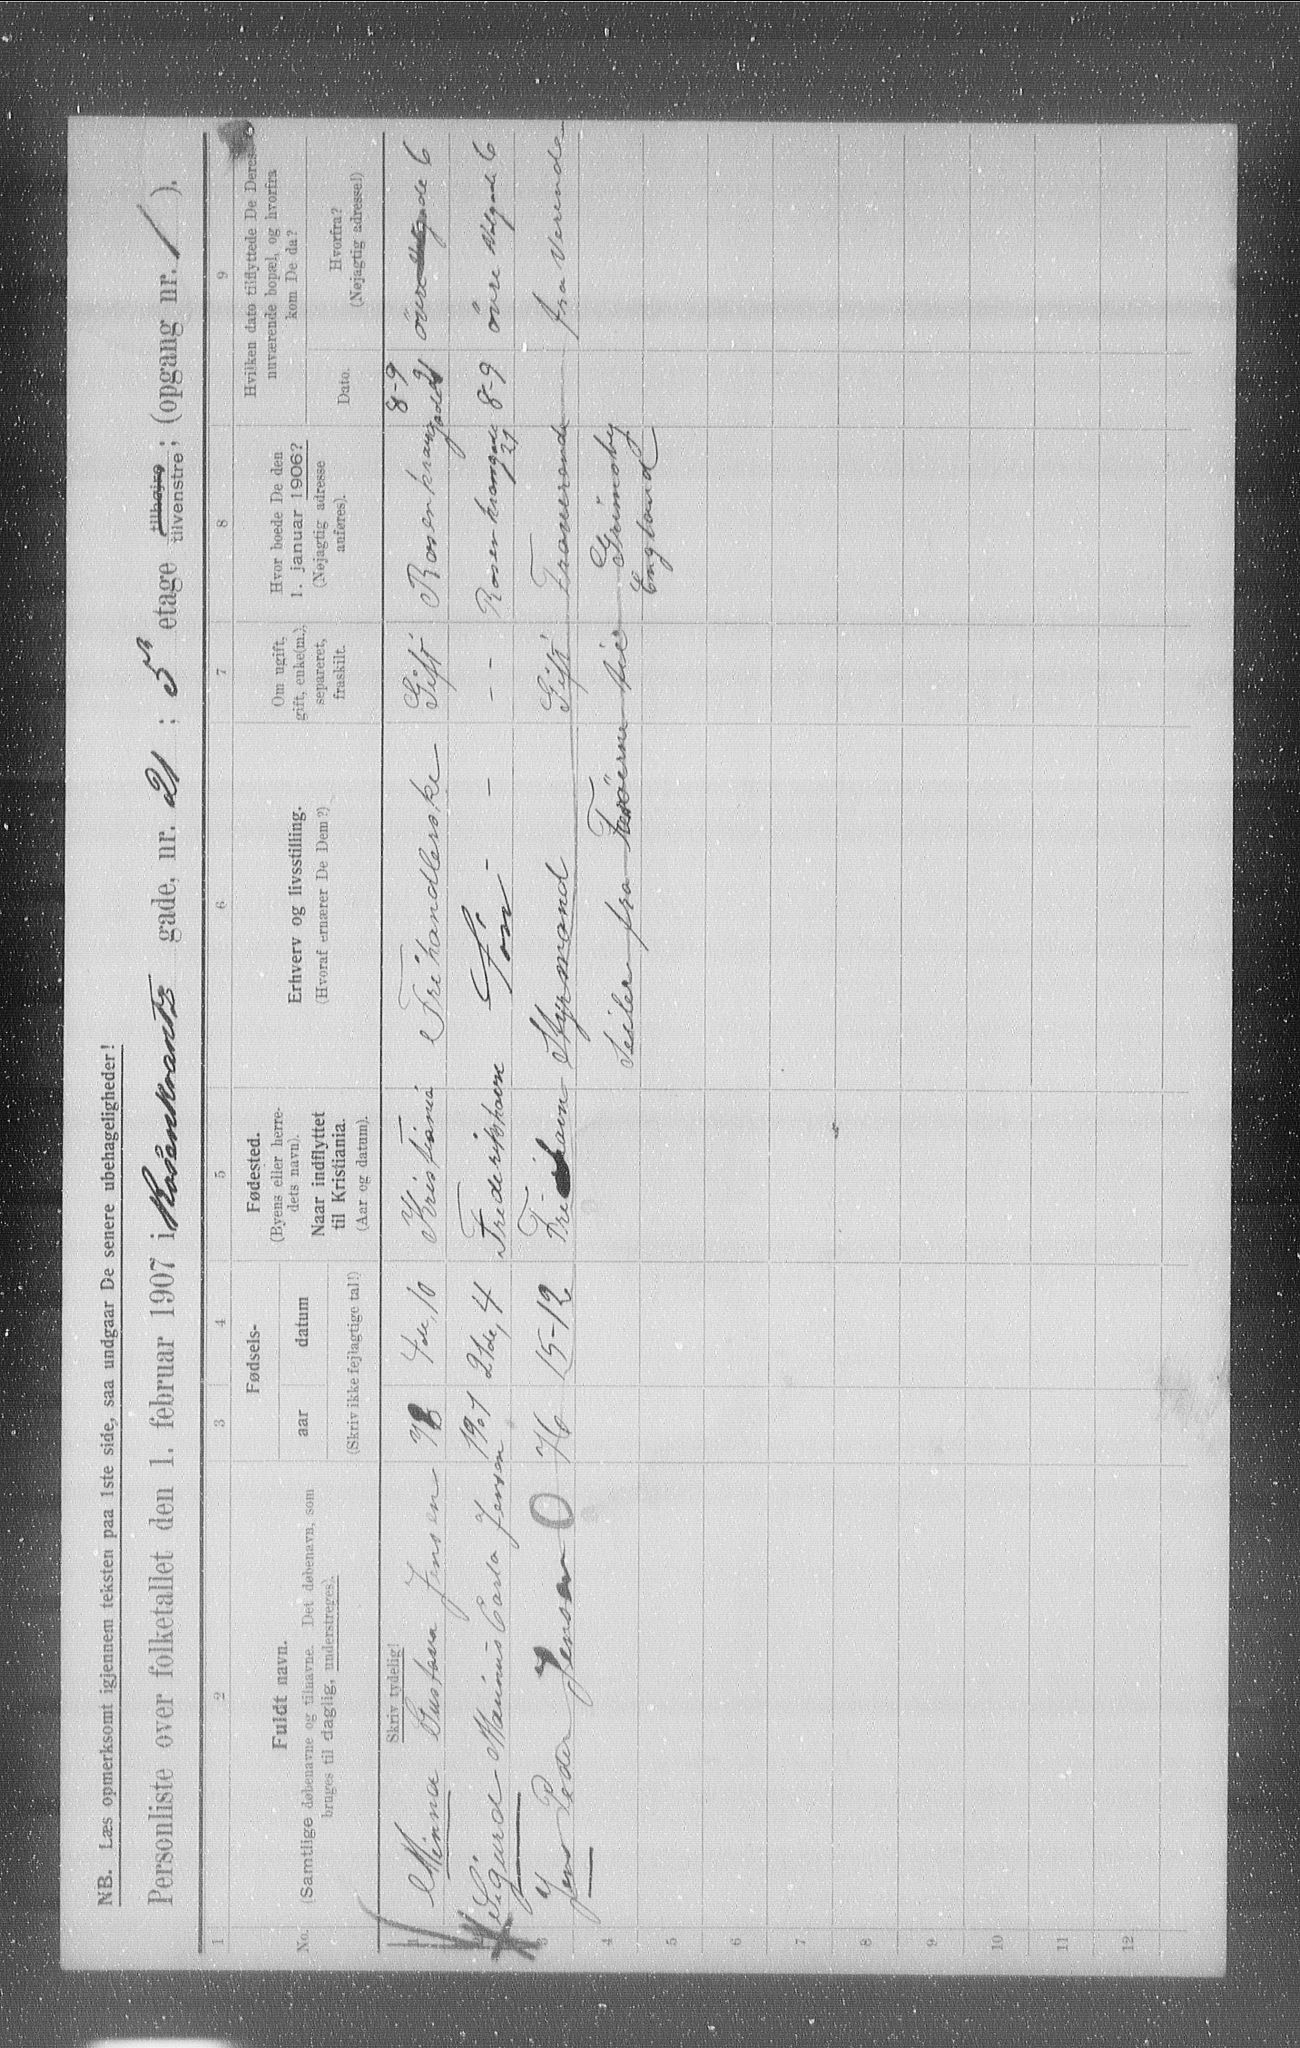 NB. Læs opmerksomt igjennem teksten paa 1ste side, saa undgaar De senere ubehageligheder!
Personliste over folketallet den 1. februar 1907 i Rosenkrantz gade, nr. 21 ; 5 etage tilhøjre tilvenstre; (opgang nr. 1 ).
1 2 3 4 5 6 7 8 9
No.
Fuldt navn.
(Samtlige døbenavne og tilnavne. Det døbenavn, som
bruges til daglig, understreges).
Skriv tydelig!
Fødsels-
aar datum
(Skriv ikke fejlagtige tal!)
Fødested.
(Byens eller herre-
dets navn).
Naar indflyttet
til Kristiania.
(Aar og datum).
Erhverv og livsstilling.
(Hvoraf ernærer De Dem?)
Om ugift,
gift, enke(m.),
separeret,
fraskilt.
Hvor boede De den
1. januar 1906?
(Nøjagtig adresse
anføres).
Hvilken dato tilflyttede De Deres
nuværende bopæl, og hvorfra
kom De da?
Dato.
Hvorfra?
(Nøjagtig adresse!)
1 Minna Gustava Jensen 78 4de, 10 Kristiania Frihandlerske Gift Rosenkrantzgade 21 8-9 övre Volgade 6
2 Sigurd Marinus Carlo Jensen 1901 21de, 4 Frederikshavn Sön - - Rosenkranzgade 21 8-9 övre Volgade 6
3 Jens Peder Jensen 76 15-12 Fr havn Styrmand Gift Fraværende fraværende
4 Seiler fra Færöerne til Grimsby
England
5
6
7
8
9
10
11
12